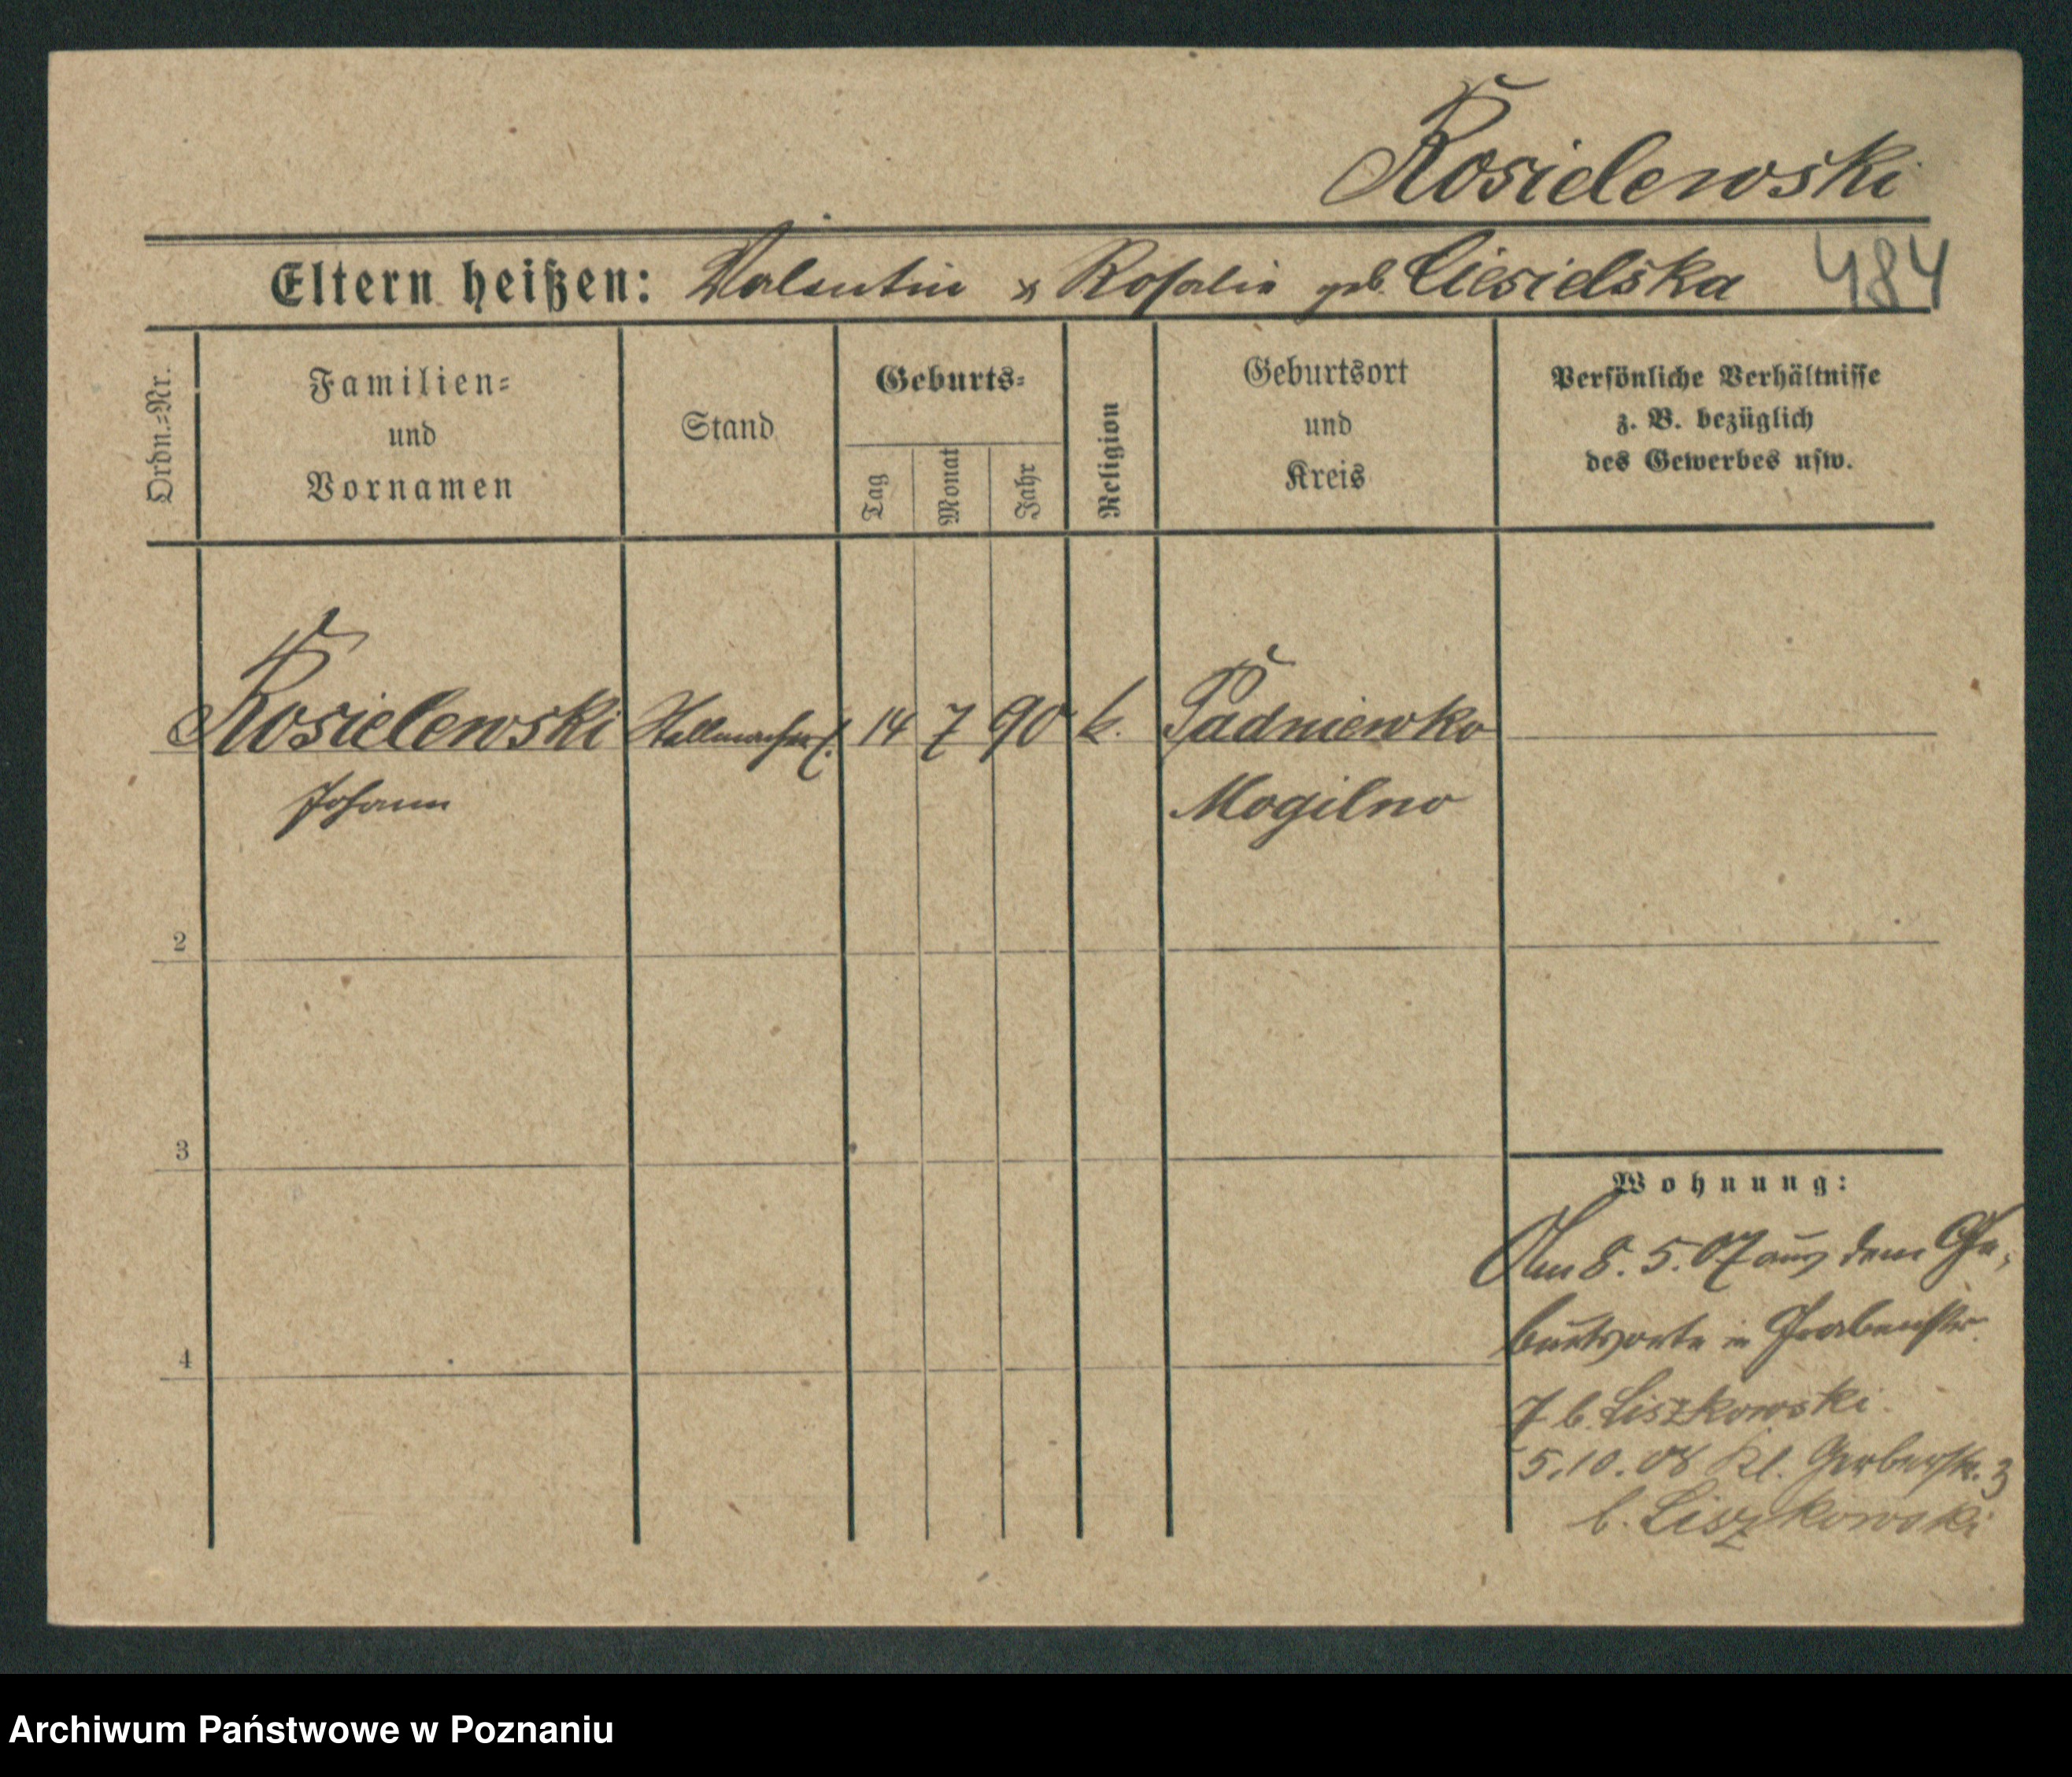 Kosielewski
Eltern heißen: Valentin & Rosalie geb. Ciesielska 484
Ordn.=Nr.
Familien=
und
Vornamen
Stand
Geburts=
Tag
Monat
Jahr
Religion
Geburtsort
und
Kreis
Persönliche Verhältnisse
z. B. bezüglich
des Gewerbes usw.
Kosielewski Stellmacherl. 14 7 90 k. Padniewko
Johann Mogilno
2
3
4
Wohnung:
Am 8. 5. 07 aus dem Ge-
burtsorte in Grabenstr.
7 b. Liszkowski.
5. 10. 08 Kl. Gerberstr. 3
b. Liszkowski
Archiwum Państwowe w Poznaniu